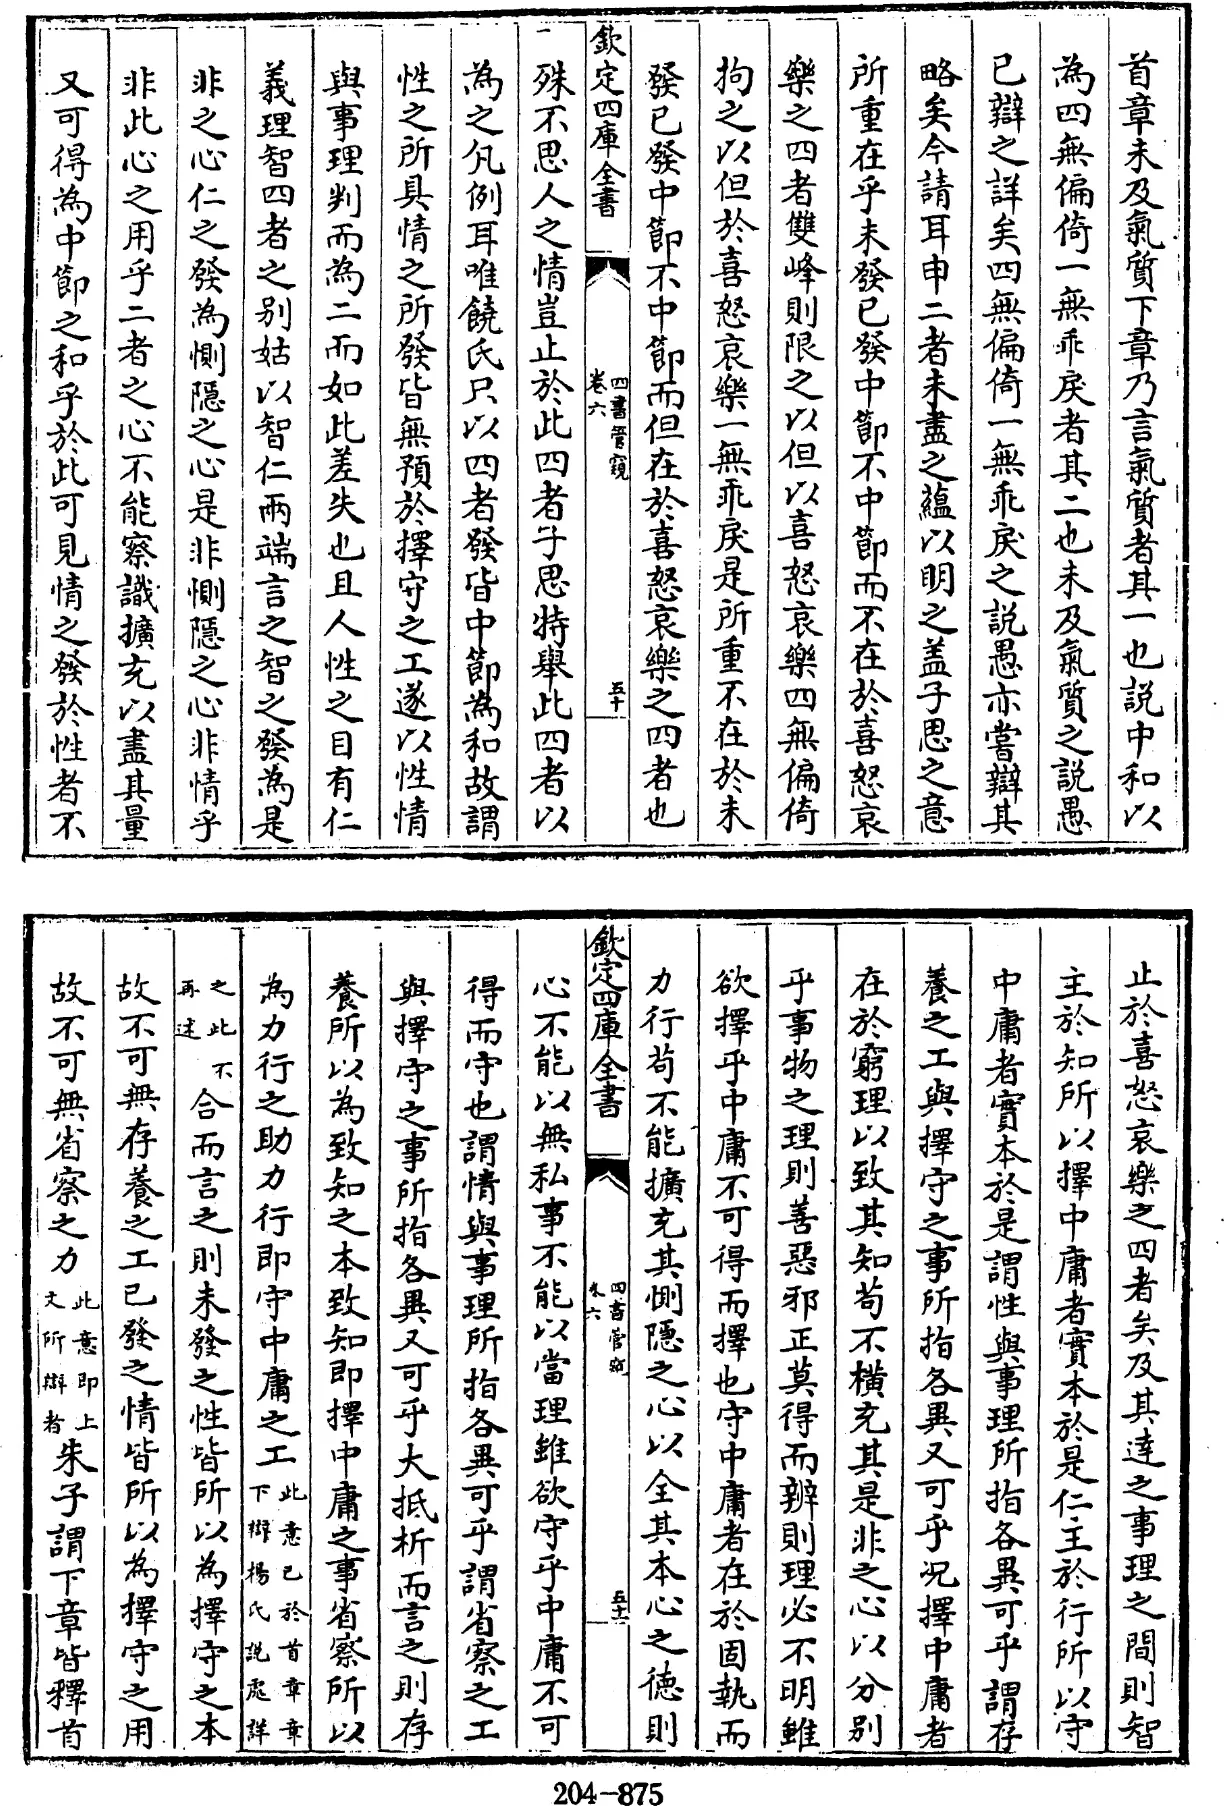 首章未及氣質下章乃言氣質者其一也説中和以
為四無偏倚一無乖戾者其二也未及氣質之説愚
已辯之詳矣四無偏倚一無乖戾之説愚亦嘗辯其
略矣今請耳申二者未盡之蘊以明之盖子思之意
所重在乎未發已發中節不中節而不在於喜怒哀
樂之四者雙峰則限之以但以喜怒哀樂四無偏倚
拘之以但於喜怒哀樂一無乖戾是所重不在於未
發已發中節不中節而但在於喜怒哀樂之四者也
欽定四庫全書
四書管窺
卷六
五十
殊不思人之情豈止於此四者子思特舉此四者以
為之凡例耳唯饒氏只以四者發皆中節為和故謂
性之所具情之所發皆無預於擇守之工遂以性情
與事理判而為二而如此差失也且人性之目有仁
義理智四者之别姑以智仁兩端言之智之發為是
非之心仁之發為惻隠之心是非惻隠之心非情乎
非此心之用乎二者之心不能察識擴充以盡其量
又可得為中節之和乎於此可見情之發於性者不
止於喜怒哀樂之四者矣及其達之事理之間則智
主於知所以擇中庸者實本於是仁主於行所以守
中庸者實本於是謂性與事理所指各異可乎謂存
養之工與擇守之事所指各異又可乎况擇中庸者
在於窮理以致其知苟不橫充其是非之心以分别
乎事物之理則善惡邪正莫得而辨則理必不明雖
欲擇乎中庸不可得而擇也守中庸者在於固執而
力行苟不能擴充其惻隠之心以全其本心之德則
欽定四庫全書
四書管窺
卷六
五十一
心不能以無私事不能以當理雖欲守乎中庸不可
得而守也謂情與事理所指各異可乎謂省察之工
與擇守之事所指各異又可乎大抵析而言之則存
養所以為致知之本致知即擇中庸之事省察所以
為力行之助力行即守中庸之工此意已於首章章下辯楊氏説處詳
之此不再述合而言之則未發之性皆所以為擇守之本
故不可無存養之工已發之情皆所以為擇守之用
故不可無省察之力此意即上文所辯者朱子謂下章皆釋首
204-875